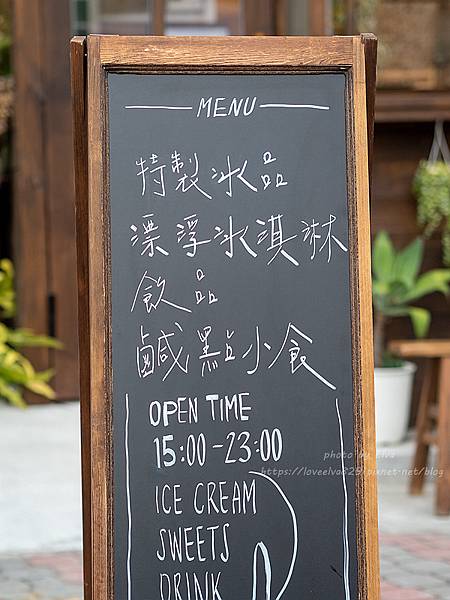 MENU
特製冰品
漂浮冰淇淋
飲品
鹹點小食
OPEN TIME
15:00-23:00
ICE CREAM
SWEETS
DRINK
photo by Elva